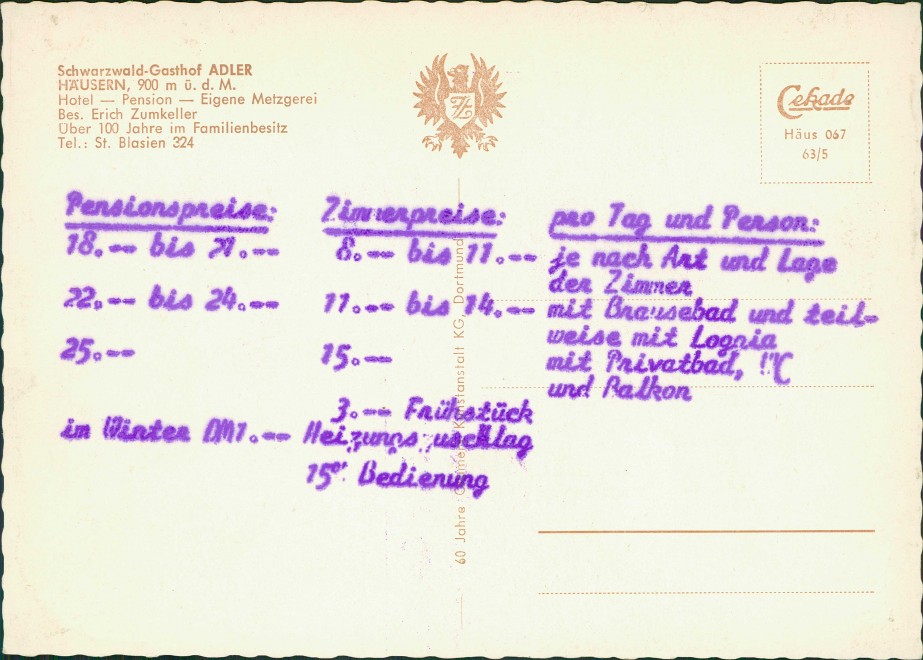 Schwarzwald-Gasthof ADLER
HÄUSERN, 900 m ü. d. M.
Hotel — Pension — Eigene Metzgerei
Bes. Erich Zumkeller
Über 100 Jahre im Familienbesitz
Tel.: St. Blasien 324
Cekade
Häus 067
63/5
Pensionspreise: Zimmerpreise: pro Tag und Person:
18.-- bis 21.-- 8.-- bis 11.-- je nach Art und Lage
der Zimmer
22.-- bis 24.-- 11.-- bis 14.-- mit Brausebad und teil-
weise mit Loggia
25.-- 15.-- mit Privatbad, WC
und Balkon
3.-- Frühstück
im Winter DM1.-- Heizungszuschlag
15% Bedienung
60 Jahre Kunstanstalt KG, Dortmund